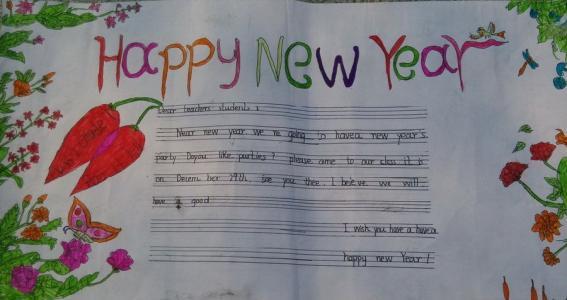 Happy New Year
Dear teachers students :
Near new year we re going to havea new year's
party Doyou like parties ? please come to our class it is
on Decem ber 29th. see you thee. I beleve we will
have a good
I wish you have a havea
happy new Year !